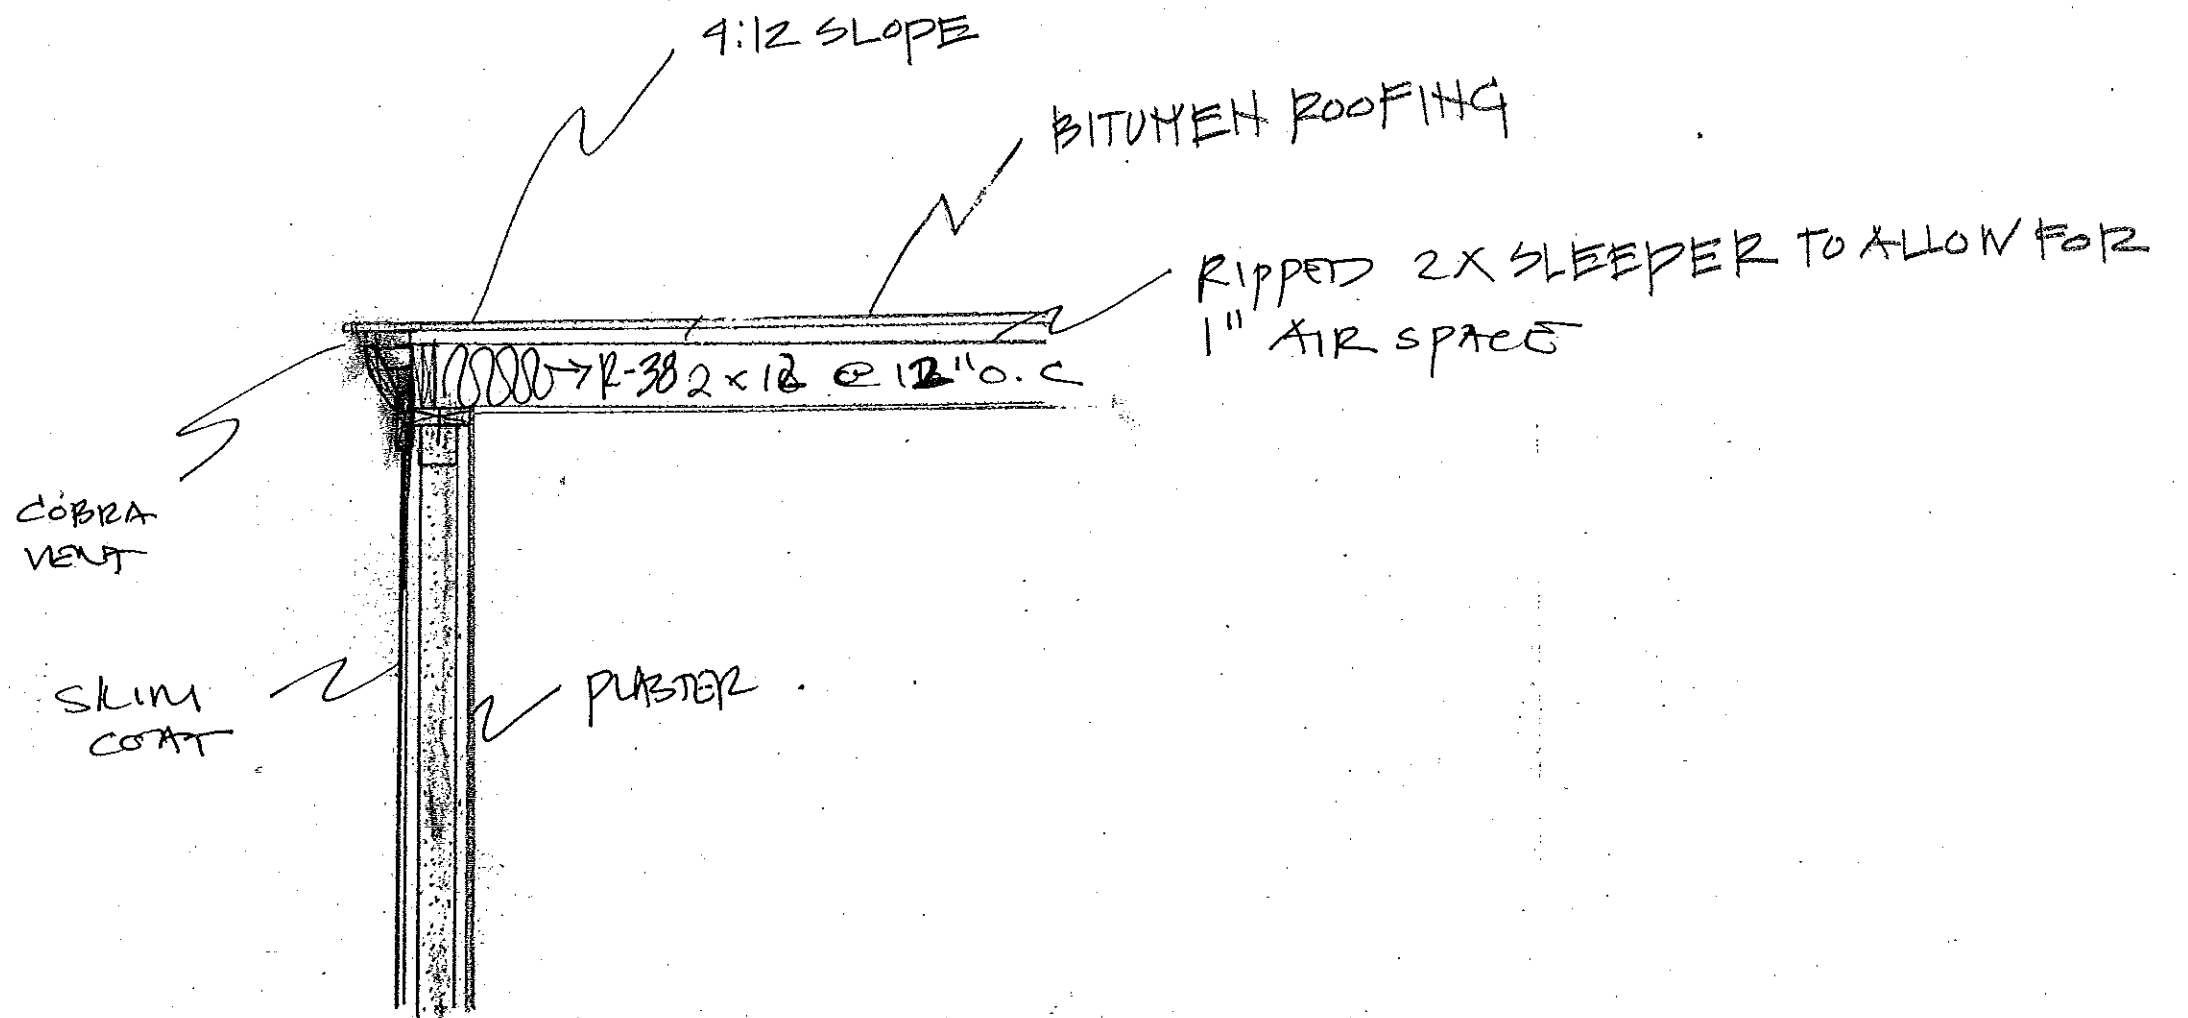 4:12 SLOPE
BITUMEN ROOFING
RIPPED 2X SLEEPER TO ALLOW FOR
1" AIR SPACE
R-38 2 x 12 @ 12" O.C
COBRA
VENT
SKIM
COAT
PLASTER